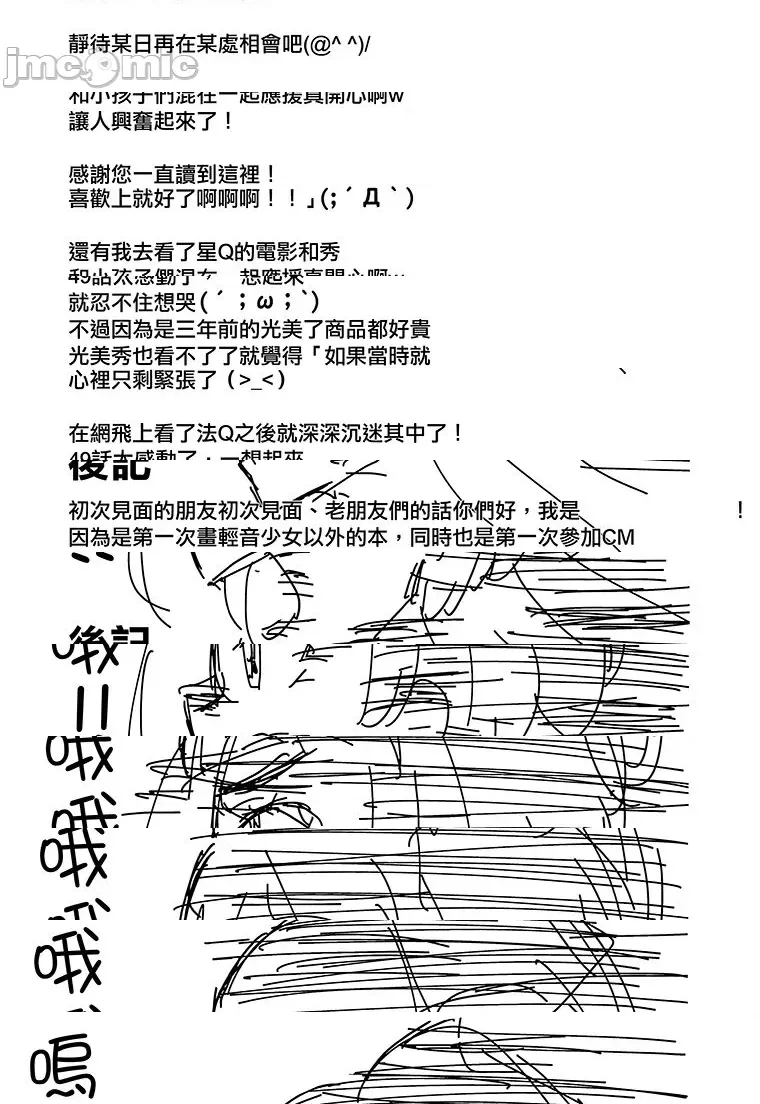 靜待某日再在某處相會吧(@^ ^)/
jmcomic
和小孩子們混在一起應援真開心啊w
讓人興奮起來了！
感謝您一直讀到這裡！
喜歡上就好了啊啊啊！！」(;´Д｀)
還有我去看了星Q的電影和秀
就忍不住想哭(´；ω；`)
不過因為是三年前的光美了商品都好貴
光美秀也看不了了就覺得「如果當時就
心裡只剩緊張了（>_<）
、
在網飛上看了法Q之後就深深沉迷其中了！
49話太感動了，一想起來
後記
初次見面的朋友初次見面、老朋友們的話你們好，我是！
因為是第一次畫輕音少女以外的本，同時也是第一次參加CM
後記
哦
哦
哦
嗚